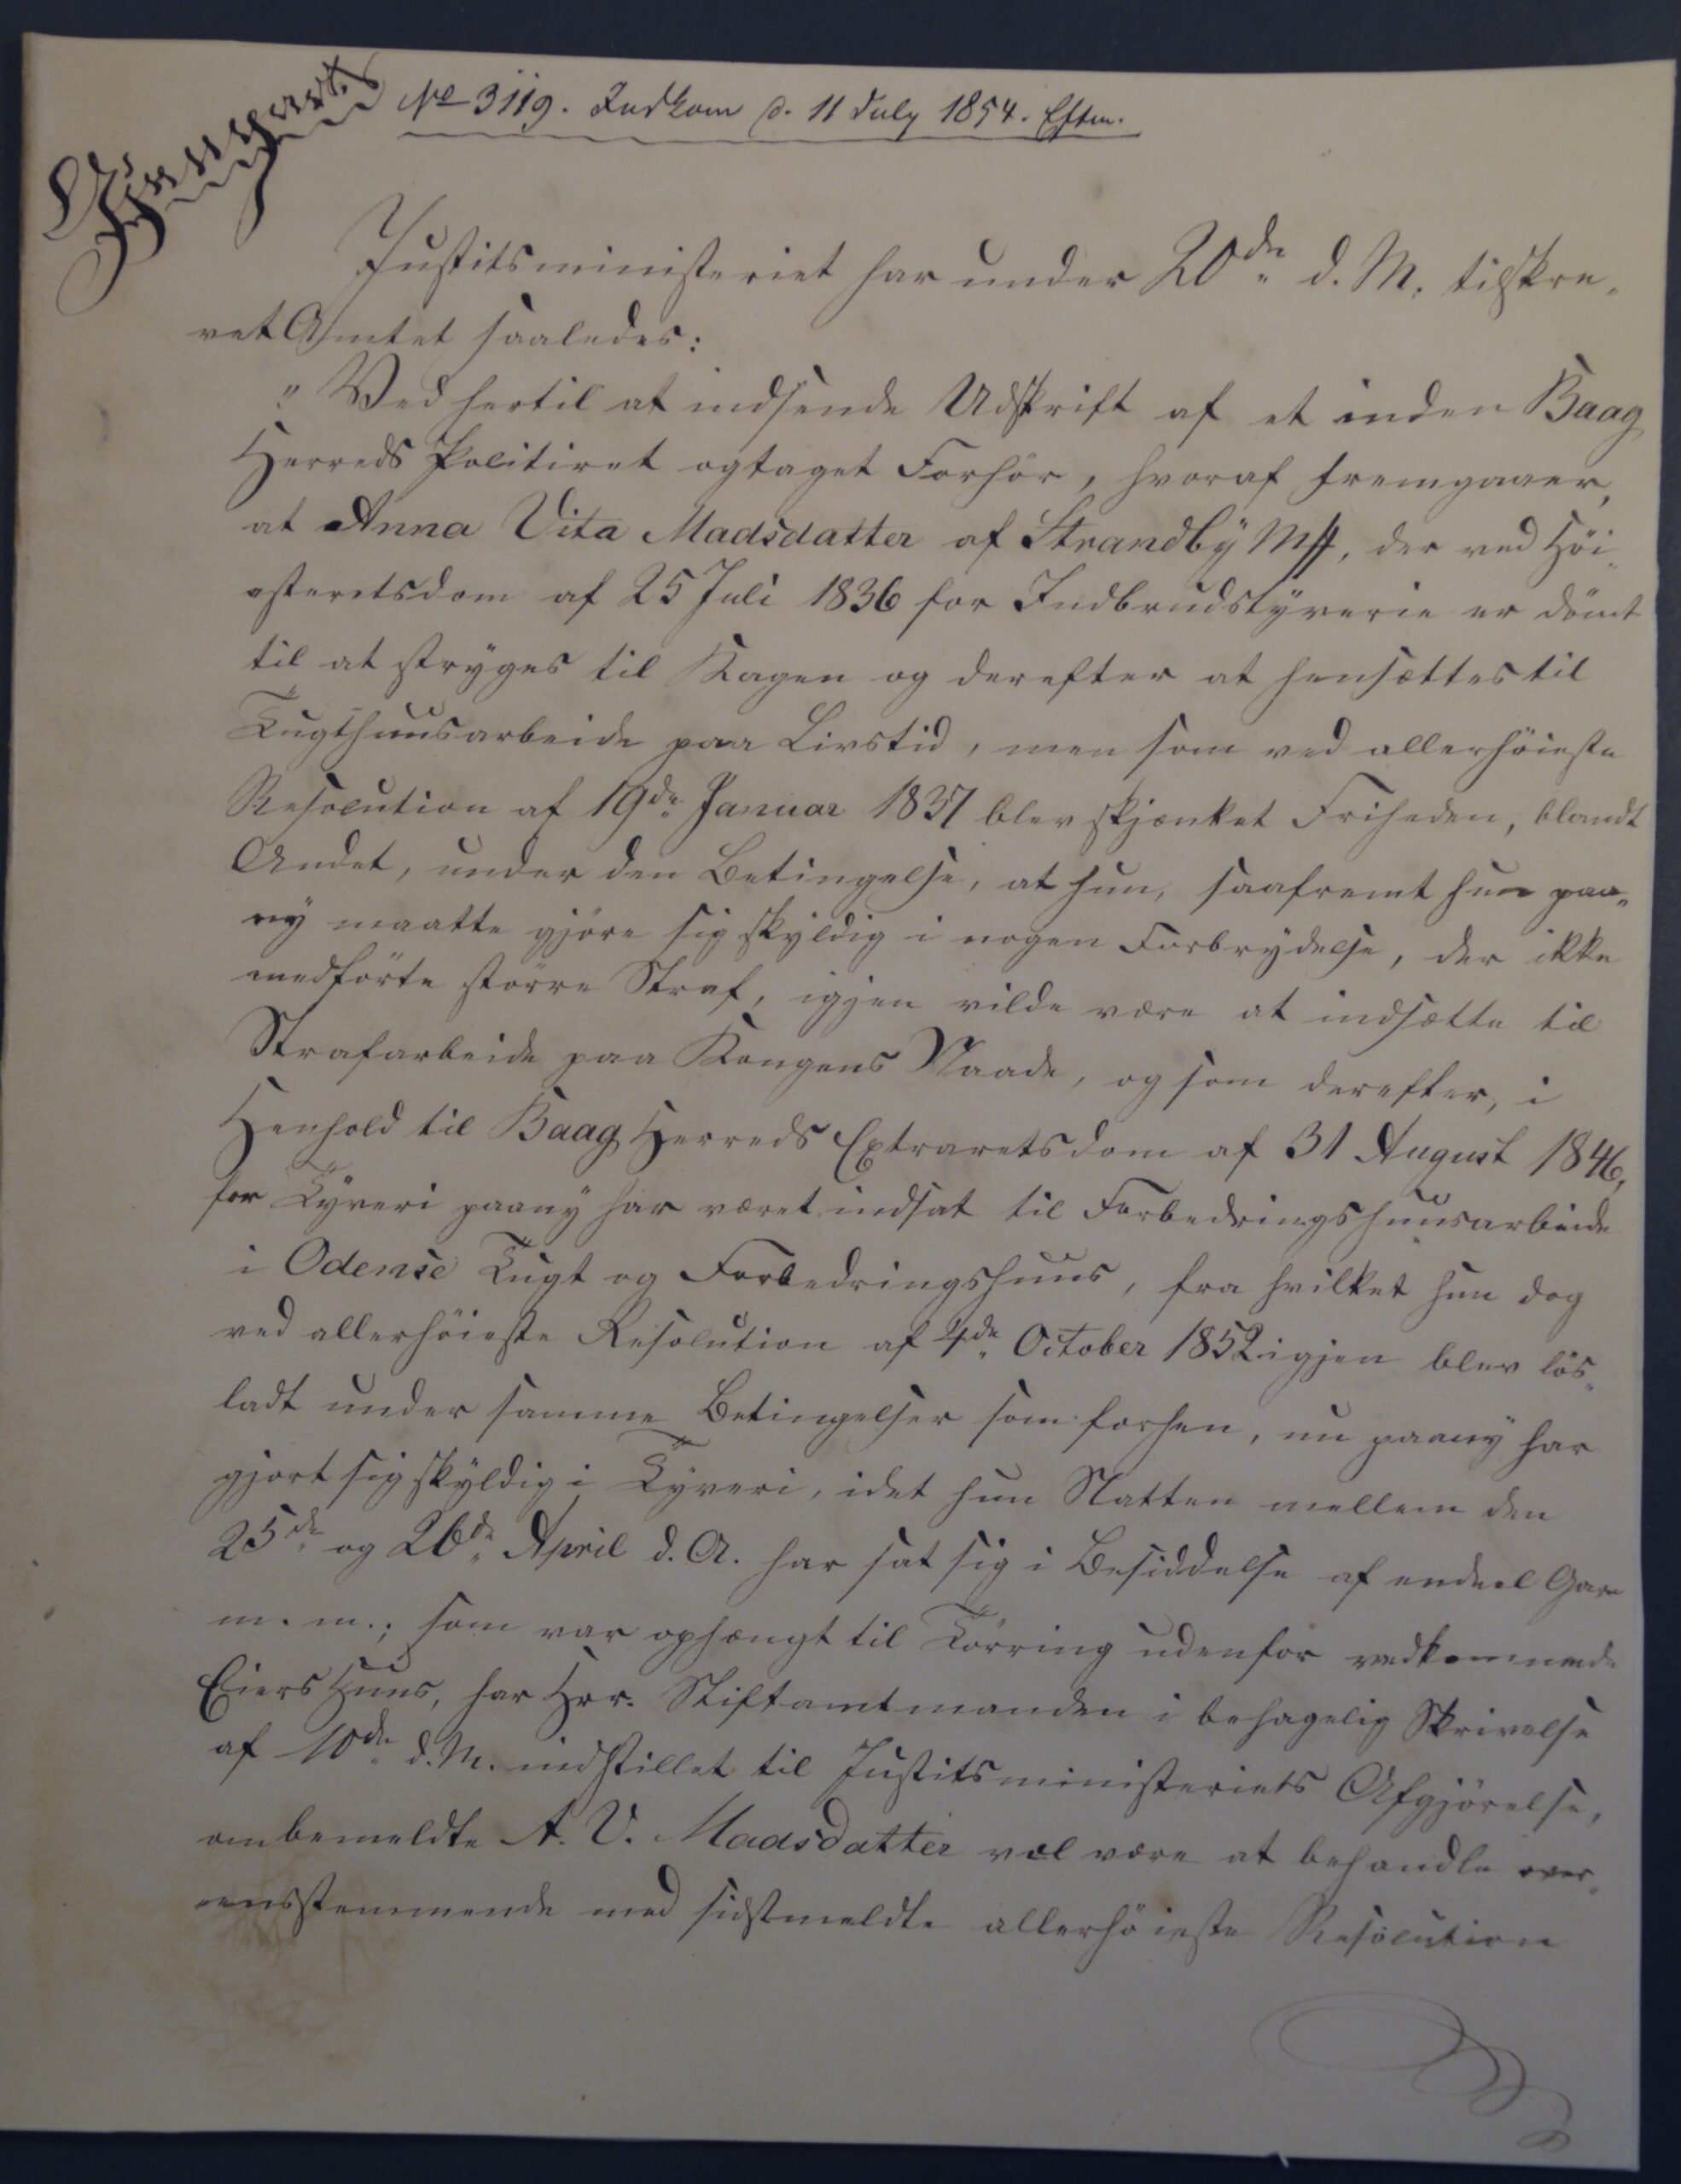 No 3119. Indkom d. 11 July 1854. Eftm.
Justitsministeriet har under 20de d. M. tilskre-
vet Amtet saaledes:
"Ved hertil at indsende Udskrift af et inden Baag
Herreds Politiret optaget Forhör, hvoraf fremgaaer,
at Anna Vita Madsdatter af Strandby Mk, der ved Höi-
esteretsdom af 25 Juli 1836 for Indbrudstyverie er dömt
til at stryges til Kagen og derefter at hensættes til
Tugthuusarbeide paa Livstid, men som ved allerhöieste
Resolution af 19de Januar 1837 blev skjænket Friheden, blandt
Andet, under den Betingelse, at hun, saafremt hun paa-
ny maatte gjöre sig skyldig i nogen Forbrydelse, der ikke
medförte större Straf, igjen vilde være at indsætte til
Strafarbeide paa Kongens Naade, og som derefter, i
Henhold til Baag Herreds Extraretsdom af 31 August 1846,
for Tyveri paany har været indsat til Forbedringshuusarbeide
i Odense Tugt og Forbedringshuus, fra hvilket hun dog
ved allerhöieste Resolution af 4de October 1852 igjen blev lös-
ladt under samme Betingelser som forhen, nu paany har
gjort sig skyldig i Tyveri, idet hun Natten mellem den
25de og 26de April d. A. har sat sig i Besiddelse af endeel Garn
m. m.; som var ophængt til Törring udenfor vedkommende
Eiers Huus, har Hrr. Stiftamtmanden i behagelig Skrivelse
af 10de d. M. indstillet til Justitsministeriets Afgjörelse,
om bemeldte A. V. Madsdatter vel være at behandle over-
eensstemmende med sidstmeldte allerhöieste Resolution